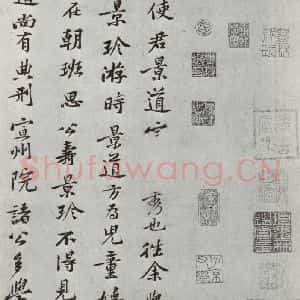 使君景道宗秀也往余與
景珍游時 景道方為兒童嬉
在朝班思公壽景珍不得見
道尚有典刑 宣州院諸公多學
Shufawang.CN